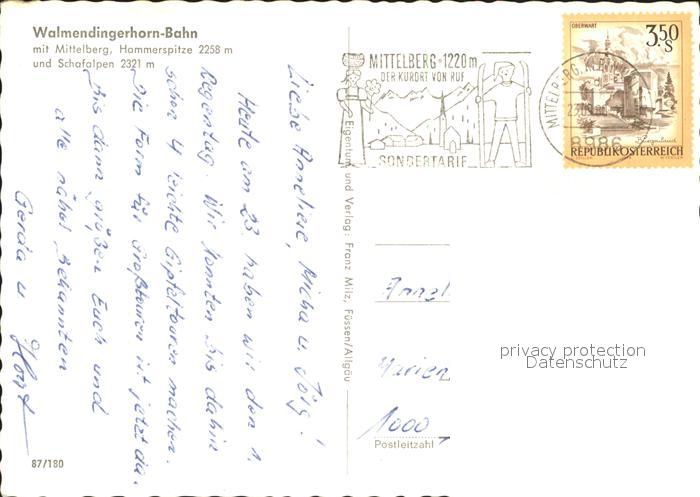 Walmendingerhorn-Bahn
mit Mittelberg, Hammerspitze 2258 m
und Schafalpen 2321 m
Liebe Anneliese, Micha u. Jörg!
Heute am 23. haben wir den 1.
Regentag. Wir konnten bis dahin
schon 4 leichte Gipfeltouren machen.
Die Form für Großtouren ist jetzt da.
Bis dann grüßen Euch und
alle näher Bekannten
Gerda u. Horst
87/180
Eigentum und Verlag: Franz Milz, Füssen/Allgäu
MITTELBERG - 1220 m
DER KURORT VON RUF
SONDERTARIF
MITTELBERG, KL.
8986
OBERWART
3.50
S
Burgenland
REPUBLIK ÖSTERREICH
Marien
1000
Postleitzahl
privacy protection
Datenschutz